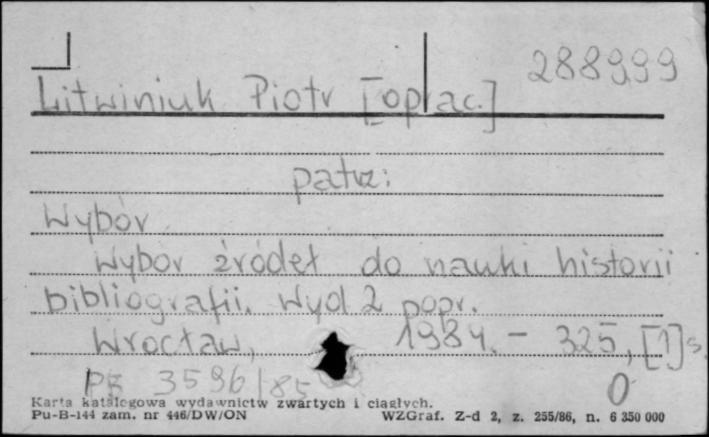 288999
Litwiniuk Piotr [oprac.]
patrz:
Wybór
Wybór źródeł do nauki historii
bibliografii. Wyd 2 popr.
Wrocław, 1984. – 325, [1] s.
PB 3596/85 0
Karta katalogowa wydawnictw zwartych i ciągłych.
Pu-B-144 zam. nr 446/DW/ON WZGraf. Z-d 2, z. 255/86, n. 6 350 000